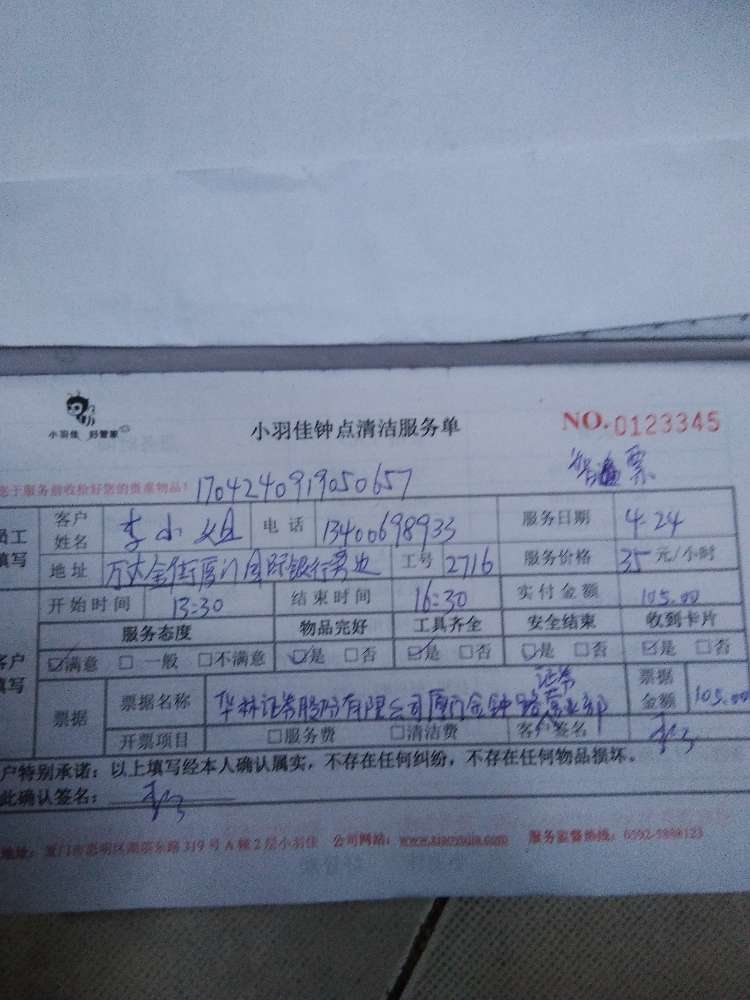 小羽佳 好管家
小羽佳钟点清洁服务单
NO.0123345
您于服务前收检好您的贵重物品! 1704240919050657
票
员工填写 客户姓名 李小姐 电话 13400698933 服务日期 4.24
地址 万达金街厦门国际银行旁边 工号 2716 服务价格 35 元/小时
开始时间 13:30 结束时间 16:30 实付金额 105.00
客户填写 服务态度 物品完好 工具齐全 安全结束 收到卡片
☑满意 □一般 □不满意 ☑是 □否 ☑是 □否 ☑是 □否 ☑是 □否
票据 票据名称 华林证券股份有限公司厦门金钟路证券营业部 票据金额 105.00
开票项目 □服务费 □清洁费 客户签名
户特别承诺：以上填写经本人确认属实，不存在任何纠纷，不存在任何物品损坏。
此确认签名：
地址：厦门市思明区湖滨东路319号A幢2层小羽佳 公司网站：www.xiaoyujia.com 服务监督热线：0592-5888123